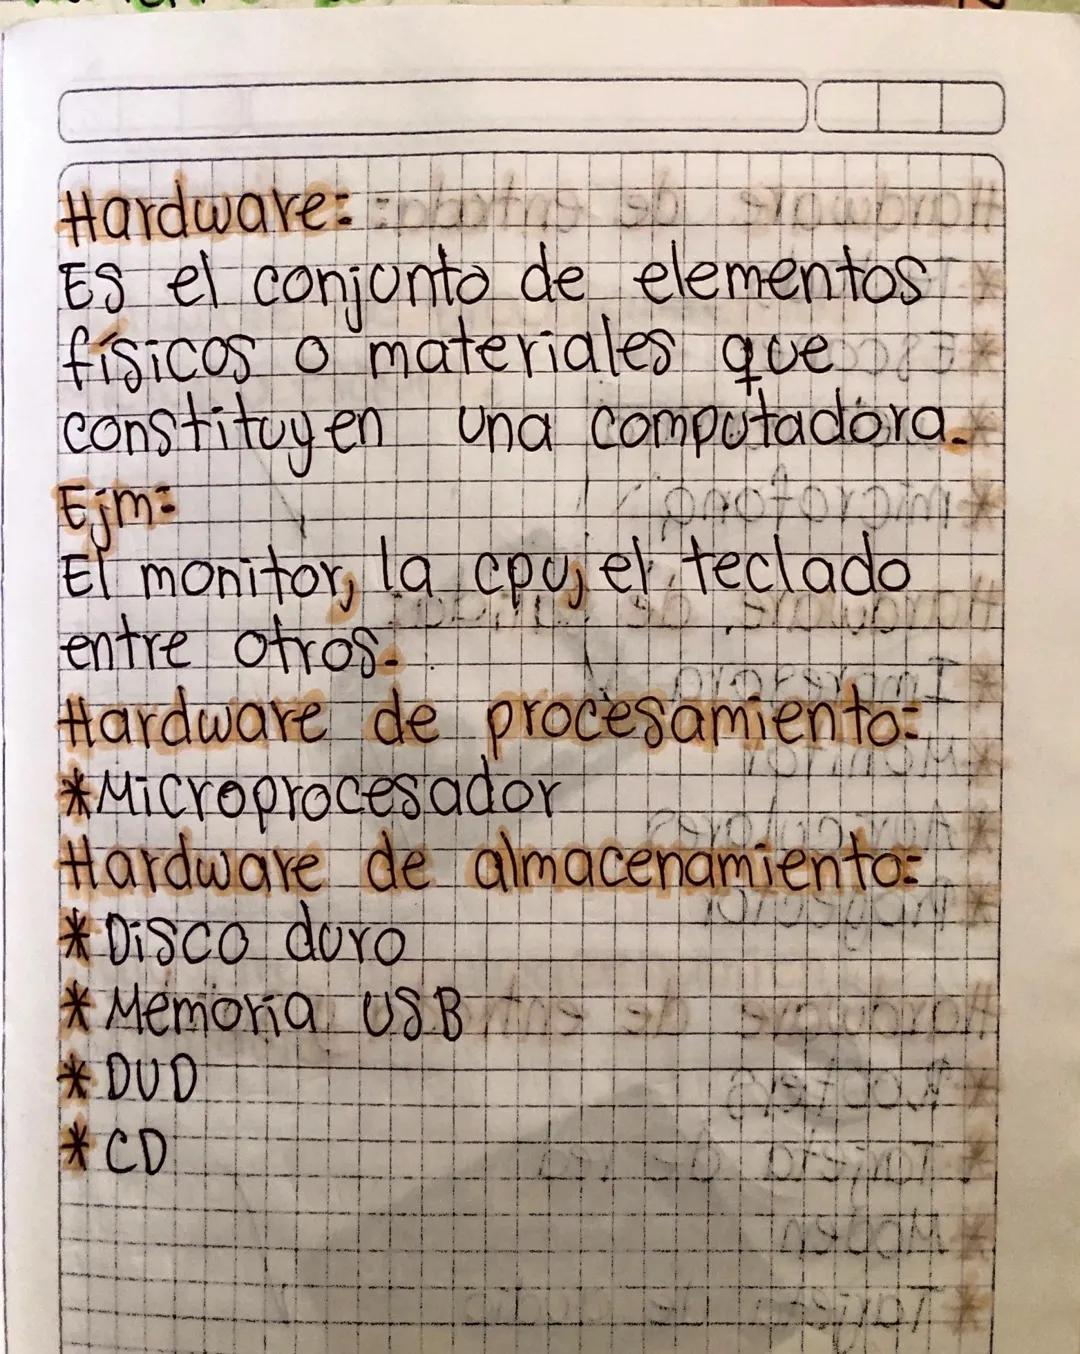 Hardware:
Es el conjunto de elementos
físicos o materiales que
constituyen una computadora.
Ejm:
El monitor, la cpu, el teclado
entre otros.
Hardware de procesamiento:
*Microprocesador
Hardware de almacenamiento:
* Disco duro
* Memoria USB
* DVD
* CD